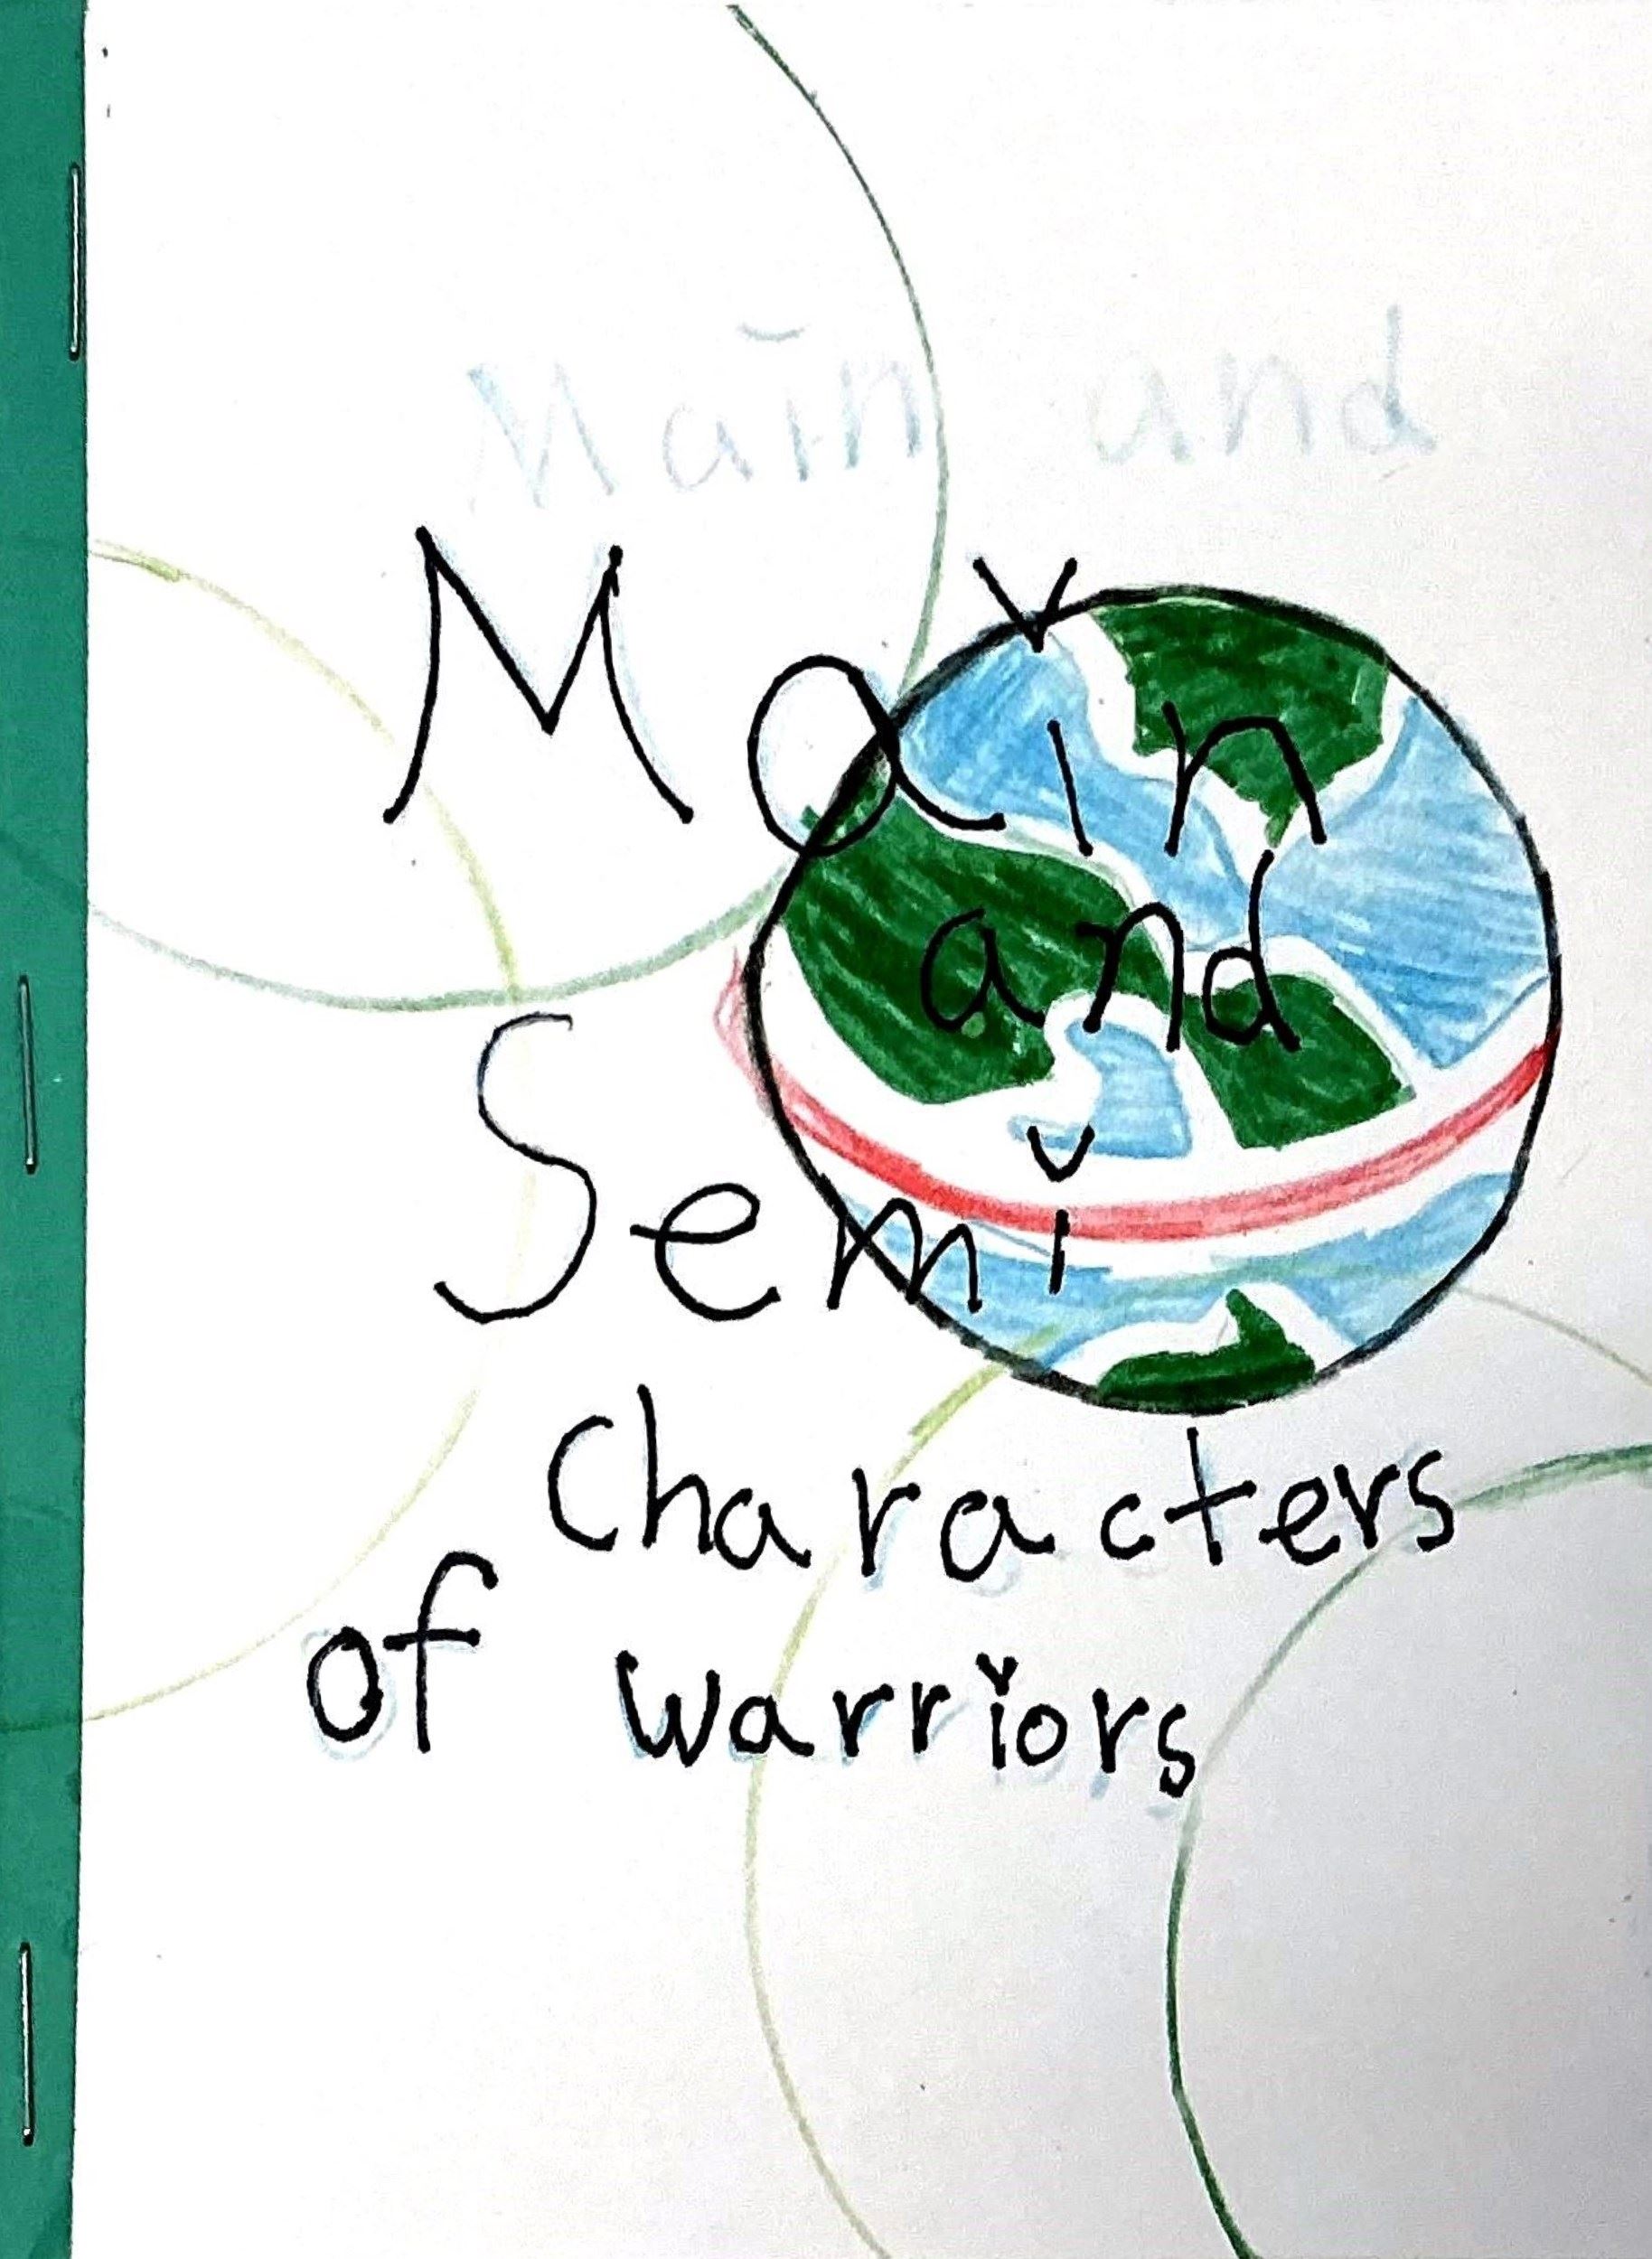 Main and
Main
and
Semi
Characters
of warriors